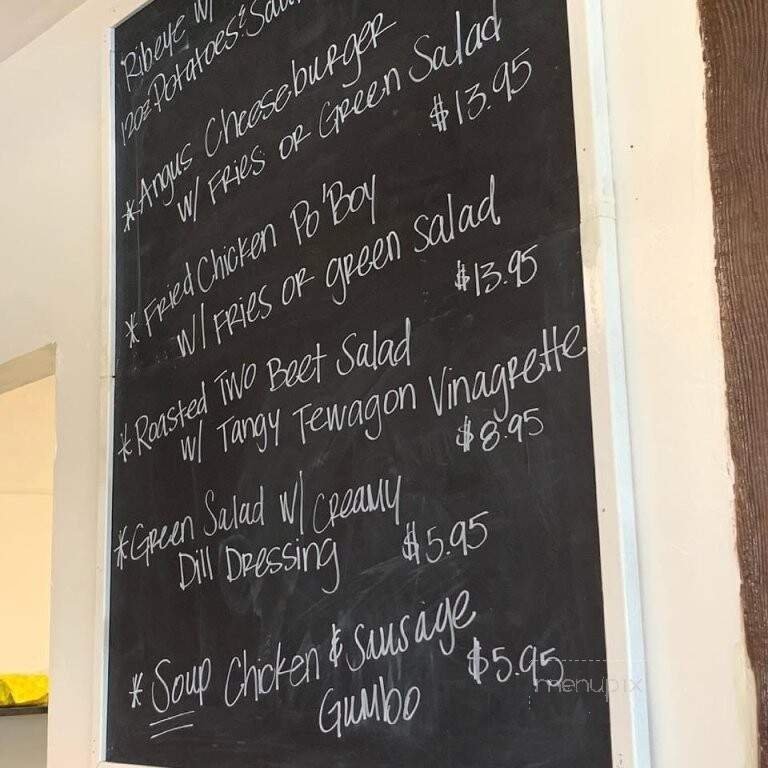 Ribeye w/
12oz Potatoes
*Angus Cheeseburger
w/ Fries or Green Salad
$13.95
*Fried Chicken Po'Boy
w/ Fries or green salad
$13.95
*Roasted Two Beet Salad
w/ Tangy Tewagon Vinagrette
$8.95
*Green Salad w/ creamy
Dill Dressing $5.95
*Soup Chicken & Sausage
Gumbo $5.95
menupix